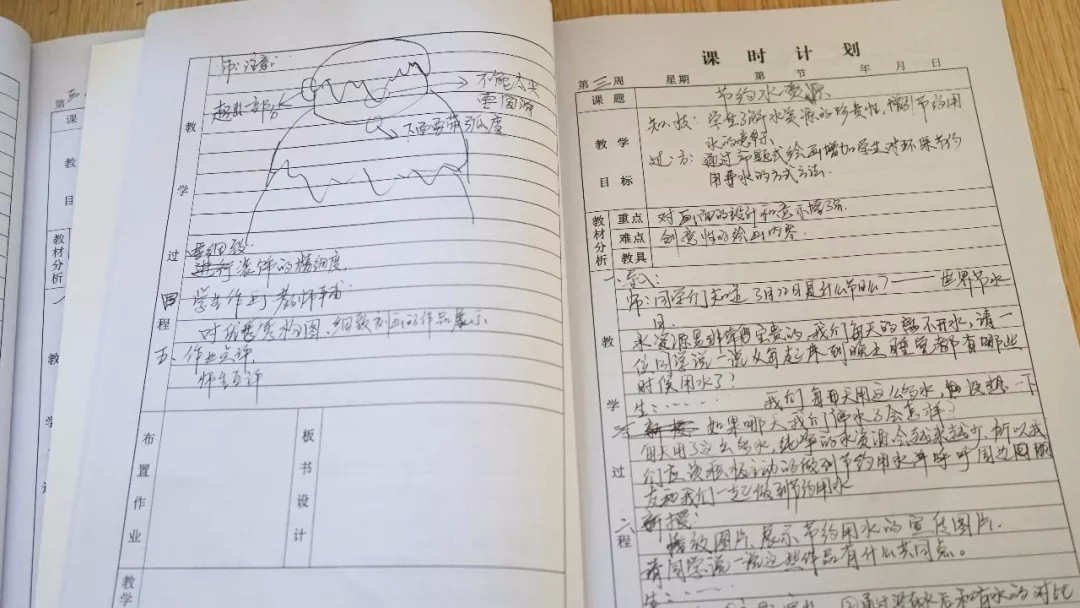 师：注意：
不能太尖
要圆滑
下面要带弧度
教学过程
要细致
进行整体的描细度
学生作画，教师辅导
五、作业点评
师生互评
布置作业
板书设计
教学
第三
课
教
目
教材分析
教
学
课时计划
第三周 星期 第 节 年 月 日
课题 节约水资源
教学目标
知、技：学生了解水资源的珍贵性，增强节约用
水的意识。
过、方：通过命题式绘画增加学生对环保节约
用水的方式方法。
教材分析
重点 对画面的设计和意识增强。
难点 创意性的绘画内容。
教具
教学过程
一、导入：
师：同学们知道3月22日是什么节日么？—— 世界节水
日。
水资源是非常宝贵的，我们每天的离不开水，请一
位同学说一说从每起床到晚上睡觉都有哪些
时候用水了？
生：…… 我们每天用这么多水，想一下
如果哪天我们停水了会怎样？
每天用了这么多水，纯净的水资源会越来越少，所以我
们应该积极主动的做到节约用水并呼吁周边朋
友和我们一起做到节约用水
二、新授：
播放图片，展示节约用水的宣传图片。
请同学说一说这些作品有什么共同点。
生：……
的对比